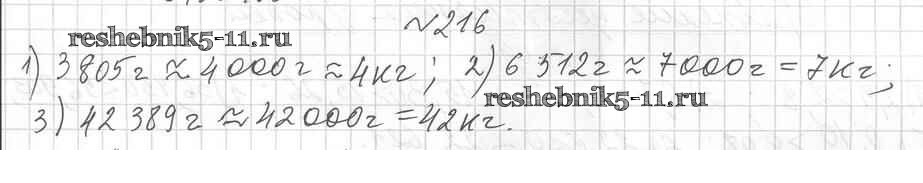 №216
reshebnik5-11.ru
1) 3805г ≈ 4000г ≈ 4кг; 2) 6 512г ≈ 7000г = 7кг;
reshebnik5-11.ru
3) 42 389г ≈ 42000г = 42кг.